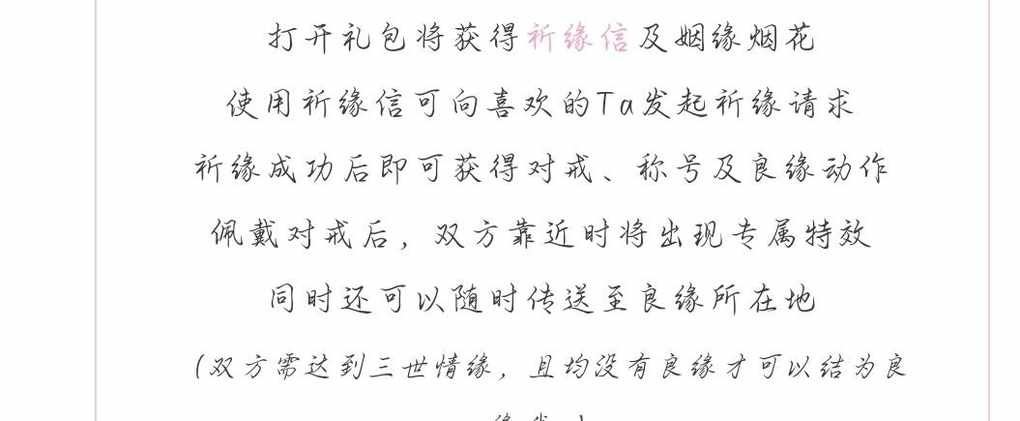 打开礼包将获得祈缘信及姻缘烟花
使用祈缘信可向喜欢的Ta发起祈缘请求
祈缘成功后即可获得对戒、称号及良缘动作
佩戴对戒后，双方靠近时将出现专属特效
同时还可以随时传送至良缘所在地
（双方需达到三世情缘，且均没有良缘才可以结为良